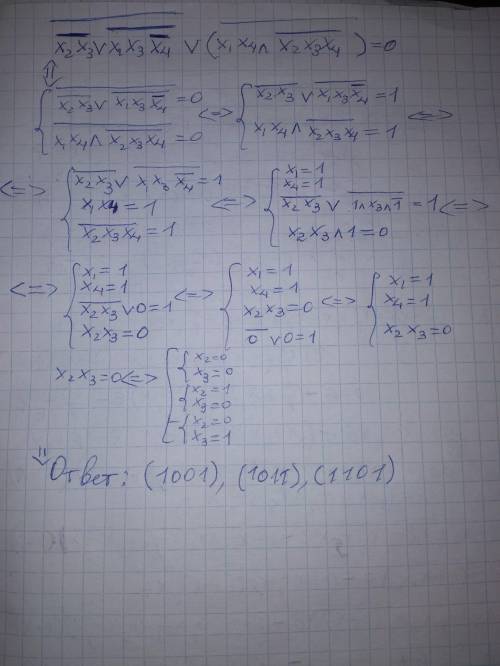 $\overline{\overline{x_2 x_3} \vee \overline{x_1 x_3 \overline{x_4}}} \vee \overline{(x_1 x_4 \wedge \overline{x_2 x_3 x_4})} = 0$
⇕
$\begin{cases} \overline{\overline{x_2 x_3} \vee \overline{x_1 x_3 \overline{x_4}}} = 0 \\ \overline{x_1 x_4 \wedge \overline{x_2 x_3 x_4}} = 0 \end{cases} \Leftrightarrow \begin{cases} \overline{x_2 x_3} \vee \overline{x_1 x_3 \overline{x_4}} = 1 \\ x_1 x_4 \wedge \overline{x_2 x_3 x_4} = 1 \end{cases} \Leftrightarrow$
$\Leftrightarrow \begin{cases} \overline{x_2 x_3} \vee x_1 x_3 \overline{x_4} = 1 \\ x_1 x_4 = 1 \\ \overline{x_2 x_3 x_4} = 1 \end{cases} \Leftrightarrow \begin{cases} x_1 = 1 \\ x_4 = 1 \\ \overline{x_2 x_3} \vee \overline{1 \wedge x_3 \wedge \overline{1}} = 1 \\ x_2 x_3 \wedge 1 = 0 \end{cases} \Leftrightarrow$
$\Leftrightarrow \begin{cases} x_1 = 1 \\ x_4 = 1 \\ \overline{x_2 x_3} \vee 0 = 1 \\ x_2 x_3 = 0 \end{cases} \Leftrightarrow \begin{cases} x_1 = 1 \\ x_4 = 1 \\ x_2 x_3 = 0 \\ \overline{0} \vee 0 = 1 \end{cases} \Leftrightarrow \begin{cases} x_1 = 1 \\ x_4 = 1 \\ x_2 x_3 = 0 \end{cases}$
$x_2 x_3 = 0 \Leftrightarrow \left[ \begin{array}{l} \begin{cases} x_2 = 0 \\ x_3 = 0 \end{cases} \\ \begin{cases} x_2 = 1 \\ x_3 = 0 \end{cases} \\ \begin{cases} x_2 = 0 \\ x_3 = 1 \end{cases} \end{array} \right.$
⇓
Ответ: (1001), (1011), (1101)